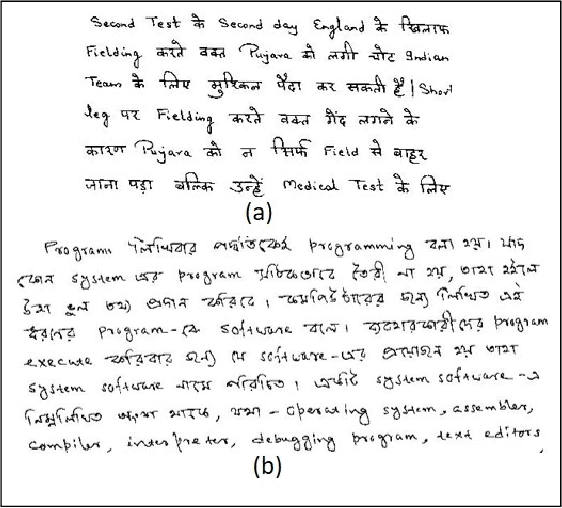 Second Test के Second day England के खिलाफ
Fielding करते वक्त Pujara को लगी चोट Indian
Team के लिए मुश्किल पैदा कर सकती है। Short
leg पर Fielding करते वक्त गेंद लगने के
कारण Pujara को न सिर्फ Field से बाहर
जाना पड़ा बल्कि उन्हें Medical Test के लिए
(a)
Program লিখিবার পদ্ধতিকেই programming বলা হয়। যদি
কোন system এর program সঠিকভাবে তৈরী না হয়, তাহা হইলে
ভুল তথ্য প্রদান করিবে। কমপিউটারের জন্য লিখিত এই
ধরনের program-কে software বলে। ব্যবহারকারীদের program
execute করিবার জন্য যে software-এর প্রয়োজন হয় তাহা
system software নামে পরিচিত। একটি system software-এ
নিম্নলিখিত থাকে, যথা - operating system, assembler,
compiler, interpreter, debugging program, text editors,
(b)